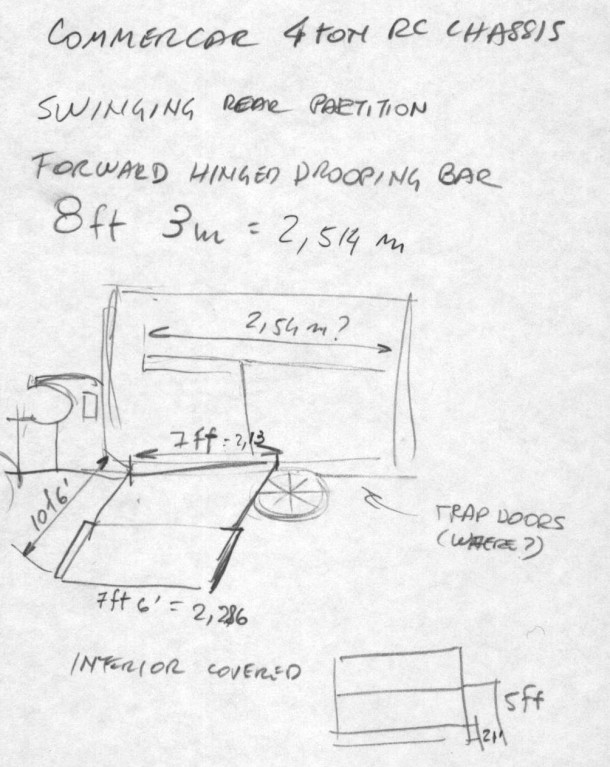 COMMERCAR 4 TON RC CHASSIS
SWINGING REAR PARTITION
FORWARD HINGED DROOPING BAR
8ft 3m = 2,514 m
2,54 m?
7ft = 2,13
10ft6'
TRAP DOORS
(WHERE?)
7ft 6' = 2,286
INTERIOR COVERED
5ft